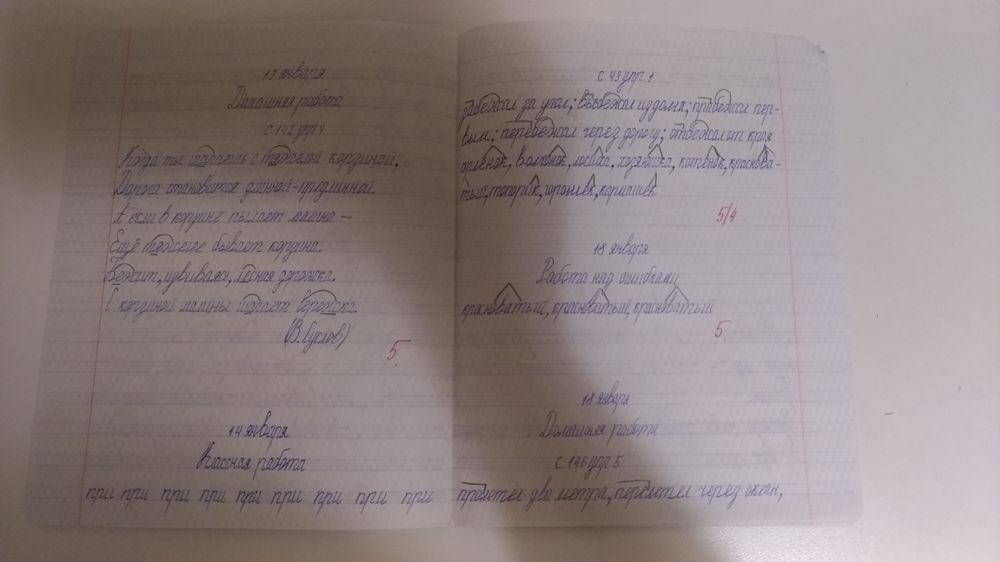 13 января
Домашняя работа
с 142 упр 4
Когда ты шагаешь с тяжёлой корзиной,
Дорога становится длинной-предлинной.
А если в корзине пылает малина —
Ещё тяжелее бывает корзина.
Бежит, извиваясь, лесная дорожка.
С корзиной малины шагает Серёжка.
(В. Суслов)
5
14 января
Классная работа
при при при при при при при при при
с 43 упр 1
забежал за угол; выбежал из дома; прибежал пер-
вым; перебежал через дорогу; отбежал от края
орлёнок, волчонок, лосиха, хозяюшка, котёнок, краснова-
тый, топорик, горошек, кармашек
5/4
18 января
Работа над ошибками
красноватый, красноватый, красноватый
5
18 января
Домашняя работа
с 146 упр 5
пролетел два метра, перелетел через океан,